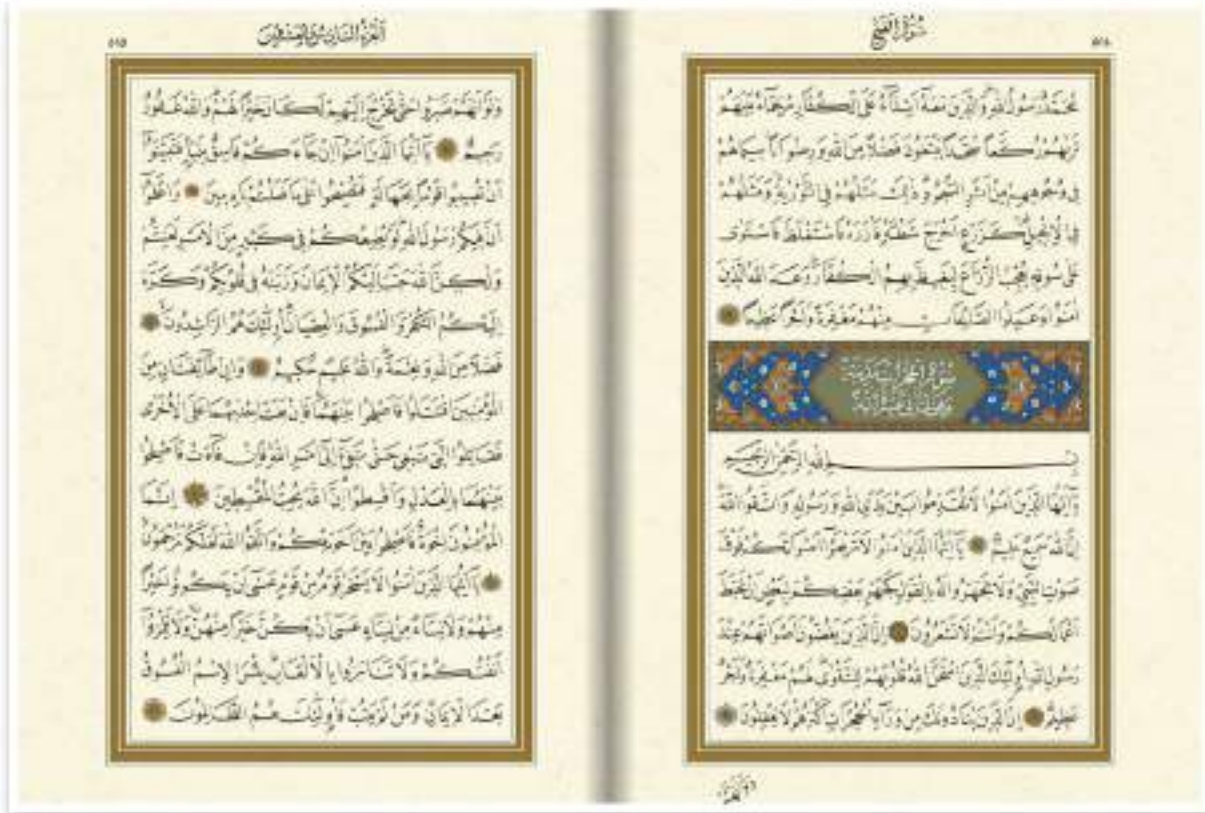 سُورَةُ الْفَتْحِ
٥١٤
مُحَمَّدٌ رَسُولُ اللّٰهِ وَالَّذِينَ مَعَهُ أَشِدَّاءُ عَلَى الْكُفَّارِ رُحَمَاءُ بَيْنَهُمْ
تَرٰيهُمْ رُكَّعًا سُجَّدًا يَبْتَغُونَ فَضْلًا مِنَ اللّٰهِ وَرِضْوَانًا سِيمَاهُمْ
فِي وُجُوهِهِمْ مِنْ أَثَرِ السُّجُودِ ذٰلِكَ مَثَلُهُمْ فِي التَّوْرٰيةِ وَمَثَلُهُمْ
فِي الْإِنْجِيلِ كَزَرْعٍ أَخْرَجَ شَطْـَٔهُ فَاٰزَرَهُ فَاسْتَغْلَظَ فَاسْتَوٰى
عَلٰى سُوقِهِ يُعْجِبُ الزُّرَّاعَ لِيَغِيظَ بِهِمُ الْكُفَّارَ وَعَدَ اللّٰهُ الَّذِينَ
اٰمَنُوا وَعَمِلُوا الصَّالِحَاتِ مِنْهُمْ مَغْفِرَةً وَأَجْرًا عَظِيمًا
سُورَةُ الْحُجُرَاتِ مَدَنِيَّةٌ
وَهِيَ ثَمَانِيَ عَشْرَةَ اٰيَةً
بِسْمِ اللّٰهِ الرَّحْمٰنِ الرَّحِيمِ
يَا أَيُّهَا الَّذِينَ اٰمَنُوا لَا تُقَدِّمُوا بَيْنَ يَدَيِ اللّٰهِ وَرَسُولِهِ وَاتَّقُوا اللّٰهَ
إِنَّ اللّٰهَ سَمِيعٌ عَلِيمٌ يَا أَيُّهَا الَّذِينَ اٰمَنُوا لَا تَرْفَعُوا أَصْوَاتَكُمْ فَوْقَ
صَوْتِ النَّبِيِّ وَلَا تَجْهَرُوا لَهُ بِالْقَوْلِ كَجَهْرِ بَعْضِكُمْ لِبَعْضٍ أَنْ تَحْبَطَ
أَعْمَالُكُمْ وَأَنْتُمْ لَا تَشْعُرُونَ إِنَّ الَّذِينَ يَغُضُّونَ أَصْوَاتَهُمْ عِنْدَ
رَسُولِ اللّٰهِ أُولٰئِكَ الَّذِينَ امْتَحَنَ اللّٰهُ قُلُوبَهُمْ لِلتَّقْوٰى لَهُمْ مَغْفِرَةٌ وَأَجْرٌ
عَظِيمٌ إِنَّ الَّذِينَ يُنَادُونَكَ مِنْ وَرَاءِ الْحُجُرَاتِ أَكْثَرُهُمْ لَا يَعْقِلُونَ
الْجُزْءُ السَّادِسُ وَالْعِشْرُونَ
٥١٥
وَلَوْ أَنَّهُمْ صَبَرُوا حَتّٰى تَخْرُجَ إِلَيْهِمْ لَكَانَ خَيْرًا لَهُمْ وَاللّٰهُ غَفُورٌ
رَحِيمٌ يَا أَيُّهَا الَّذِينَ اٰمَنُوا إِنْ جَاءَكُمْ فَاسِقٌ بِنَبَإٍ فَتَبَيَّنُوا
أَنْ تُصِيبُوا قَوْمًا بِجَهَالَةٍ فَتُصْبِحُوا عَلٰى مَا فَعَلْتُمْ نَادِمِينَ وَاعْلَمُوا
أَنَّ فِيكُمْ رَسُولَ اللّٰهِ لَوْ يُطِيعُكُمْ فِي كَثِيرٍ مِنَ الْأَمْرِ لَعَنِتُّمْ
وَلٰكِنَّ اللّٰهَ حَبَّبَ إِلَيْكُمُ الْإِيمَانَ وَزَيَّنَهُ فِي قُلُوبِكُمْ وَكَرَّهَ
إِلَيْكُمُ الْكُفْرَ وَالْفُسُوقَ وَالْعِصْيَانَ أُولٰئِكَ هُمُ الرَّاشِدُونَ
فَضْلًا مِنَ اللّٰهِ وَنِعْمَةً وَاللّٰهُ عَلِيمٌ حَكِيمٌ وَإِنْ طَائِفَتَانِ مِنَ
الْمُؤْمِنِينَ اقْتَتَلُوا فَأَصْلِحُوا بَيْنَهُمَا فَإِنْ بَغَتْ إِحْدٰيهُمَا عَلَى الْأُخْرٰى
فَقَاتِلُوا الَّتِي تَبْغِي حَتّٰى تَفِيءَ إِلٰى أَمْرِ اللّٰهِ فَإِنْ فَاءَتْ فَأَصْلِحُوا
بَيْنَهُمَا بِالْعَدْلِ وَأَقْسِطُوا إِنَّ اللّٰهَ يُحِبُّ الْمُقْسِطِينَ إِنَّمَا
الْمُؤْمِنُونَ إِخْوَةٌ فَأَصْلِحُوا بَيْنَ أَخَوَيْكُمْ وَاتَّقُوا اللّٰهَ لَعَلَّكُمْ تُرْحَمُونَ
يَا أَيُّهَا الَّذِينَ اٰمَنُوا لَا يَسْخَرْ قَوْمٌ مِنْ قَوْمٍ عَسٰى أَنْ يَكُونُوا خَيْرًا
مِنْهُمْ وَلَا نِسَاءٌ مِنْ نِسَاءٍ عَسٰى أَنْ يَكُنَّ خَيْرًا مِنْهُنَّ وَلَا تَلْمِزُوا
أَنْفُسَكُمْ وَلَا تَنَابَزُوا بِالْأَلْقَابِ بِئْسَ الِاسْمُ الْفُسُوقُ
بَعْدَ الْإِيمَانِ وَمَنْ لَمْ يَتُبْ فَأُولٰئِكَ هُمُ الظَّالِمُونَ